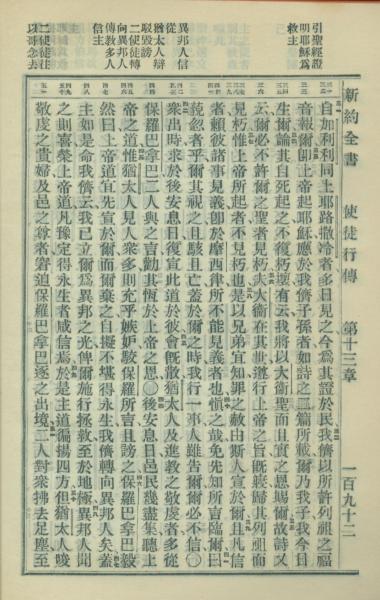 新約全書 使徒行傳 第十三章 一百九十二
引聖經證
明耶穌爲
救主
異邦人信
從
猶太人辯
駁毀謗
二使徒轉
向異邦人
傳教多人
信主
二使徒往
以哥念去
自加利利同上耶路撒冷者多日見之今爲其證於民我儕以所許列祖之福
音報爾卽上帝起耶穌應於我儕子孫者如詩之二篇所載爾乃我子我今日
生爾論其自死起之不復朽壞有云我將以大衛聖而且實之恩賜爾故詩又
云爾必不許爾之聖者見朽夫大衛在其世遵行上帝之旨旣寢歸其列祖而
見朽惟上帝所起者不見朽也是以兄弟宜知罪之赦由斯人宣於爾且凡信
者賴彼諸事見義卽於摩西律所不能見義者也愼之哉免先知所言臨爾曰
藐忽者乎爾其視之且駭且亡蓋於爾之時我行一事人雖告爾爾必不信○
衆出時求於後安息日復宣此道於彼會旣散猶太人及進教之敬虔者多從
保羅巴拿巴二人與之言勸其恆於上帝之恩○後安息日邑民幾盡集聽上
帝之道惟猶太人見人衆多則充乎嫉妒駁保羅所言且謗之保羅巴拿巴毅
然曰上帝道宜先宣於爾而爾棄之自擬不堪得永生我儕轉向異邦人矣蓋
主如是命我儕云我已立爾爲異邦之光俾爾施行拯救至於地極異邦人聞
之則喜榮上帝道凡豫定得永生者咸信焉於是主道徧揚四方但猶太人唆
敬虔之貴婦及邑之尊者窘迫保羅巴拿巴逐之出境二人對衆拂去足塵至